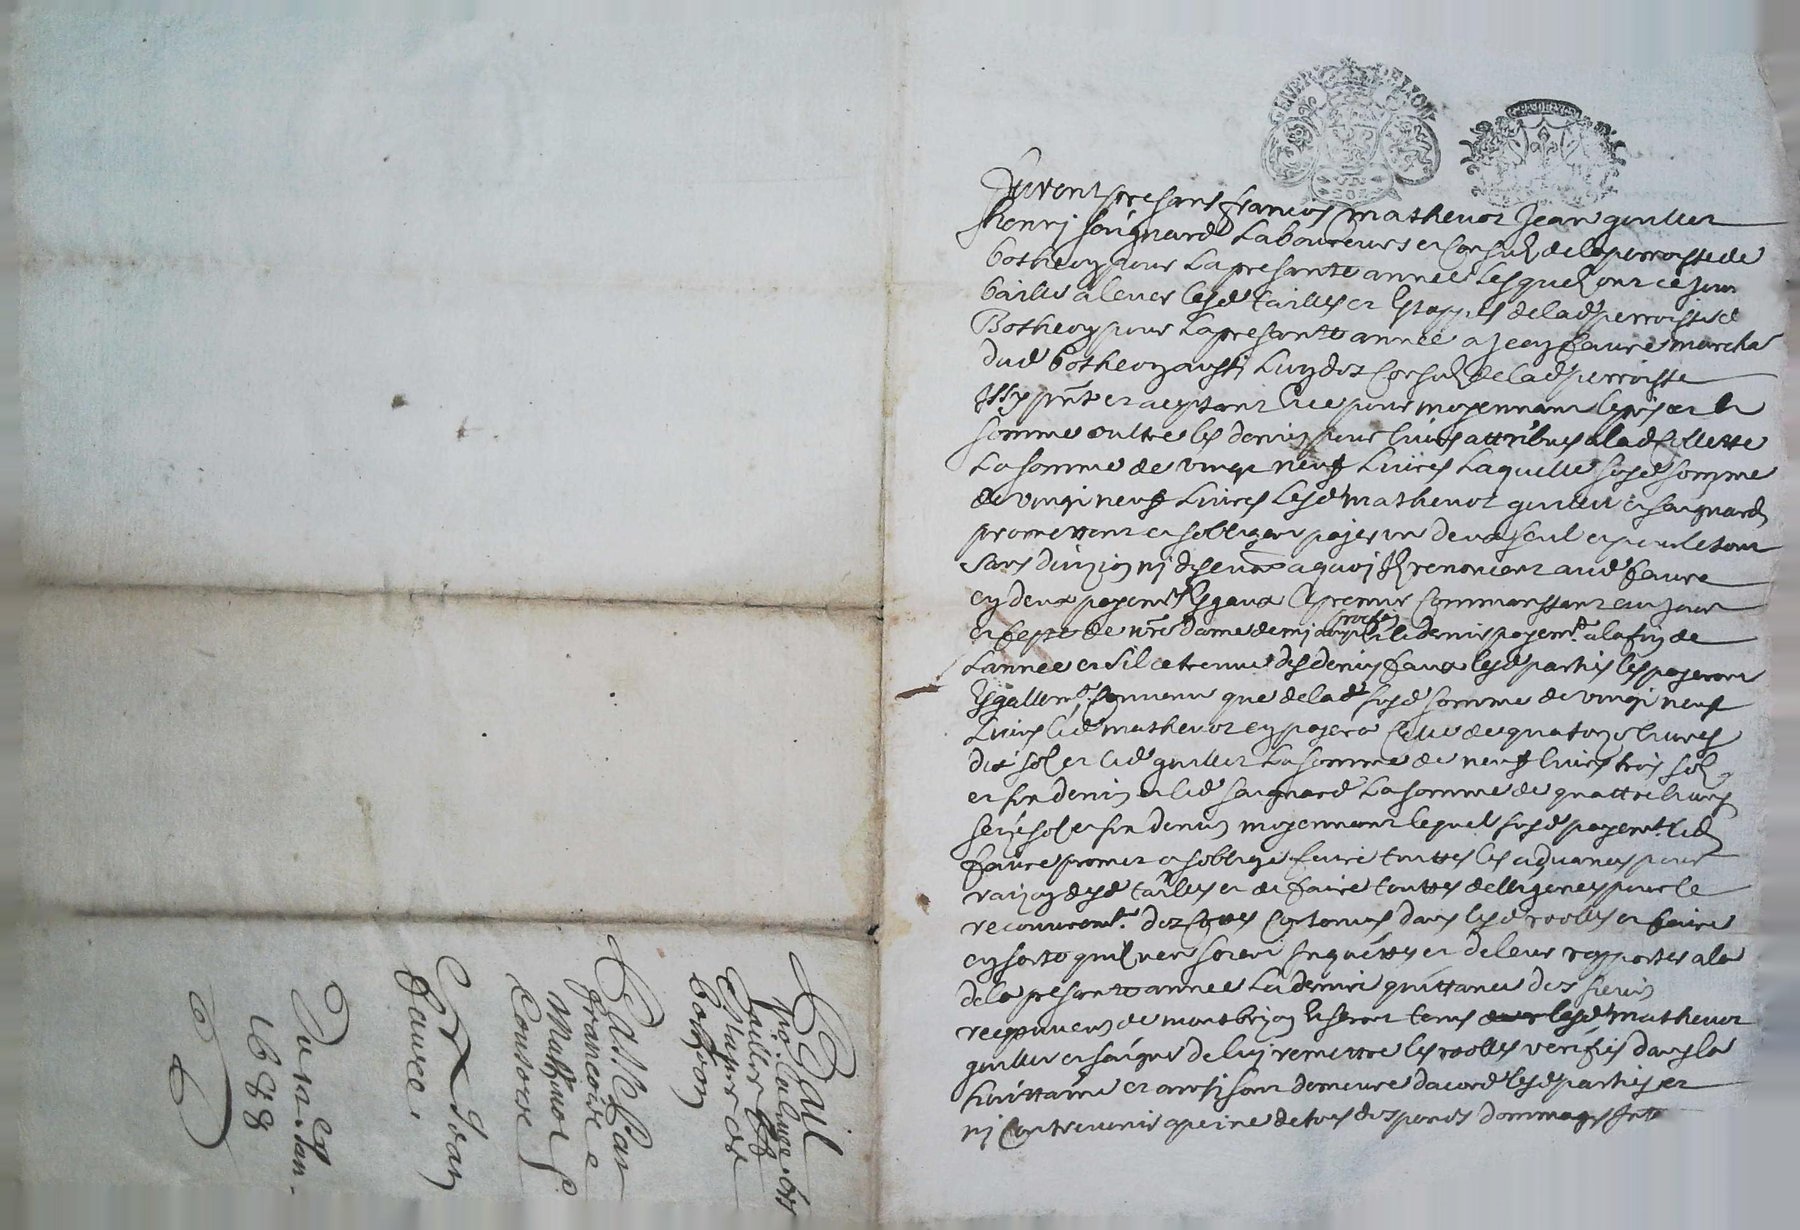 GENER DE LYON
furent presans francois mathevot Jean guillet
henrj soignard Laboureurs et Consulz de la perroisse de
botheon pour La presante annee Lesquelz ont ce jour
baillé a lever lesd tailles et de lad perroisse de
Botheon pour La presante annee a Jean faure marchã
dud botheon aussj Lun des Consulz de lad perroisse
Issy pnt et aceptant Sce pour moyennant le pris et la
somme oultre les deniers pour livres attribues a lad Collette
La somme de vingt neuf Livres Laquelle susd somme
de vingt neuf Livres Lesd mathevot guillet et soignard
promettent et sobligent payer un deux seul et pour le tout
sans divizion nj a quoj Ilz renoncent aud faure
en deux payemt Esgaux le premier Commanssant au jour
et feste de nre dame de mj prochain et le dernier payemt a la fin de
Lannee et sil ce treuve des deniers faux lesd parties les payeront
Esgallemt Convenu que de lad susd somme de vingt neuf
Livres led mathevot en payera Celle de quatorze livres
dix solz et led guillet La somme de neuf livres trois solz
et six deniers et led soignard La somme de quattre livres
seize solz et six deniers moyennant lequel susd payemt led
faure promet et soblige faire touttes les advances pour
raizon desd tailles et de faire touttes delligences pour le
recouvremt des Cottes Contenues dans lesd roolles et faire
en sorte quilz nen soient Inquiettes et de leur rapporter a la
de la presante annee La derniere quittance des sieurs
recepveurs de montbrizon Et seront tenus lesd mathevot
guillet et soignard de luj remettre les roolles verifies dans la
huittaine et ainsj sont demeures dacord lesd parties et
nj Contrevenir a peine de tous despans dommages Inte
Bail
Tailles
Botheon
Passe Par
francois
Mathevot
Consorts
Et Jean
Faure
Du 12 Jan
1688